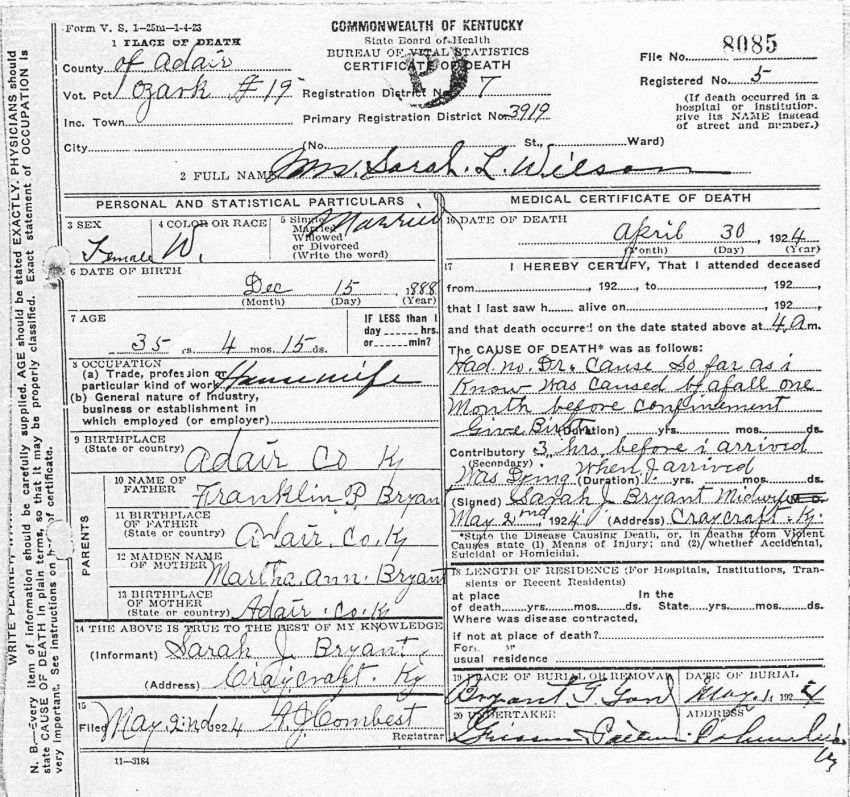 Form V. S. 1-25m-1-4-23
COMMONWEALTH OF KENTUCKY
State Board of Health
BUREAU OF VITAL STATISTICS
CERTIFICATE OF DEATH
File No. 8085
Registered No. 5
(If death occurred in a
hospital or institution,
give its NAME instead
of street and number.)
1 PLACE OF DEATH
County of Adair
Vot. Pct. Ozark #19
Registration District No. 7
Inc. Town
Primary Registration District No. 3919
City (No. St., Ward)
2 FULL NAME Mrs. Sarah. L. Wilson
PERSONAL AND STATISTICAL PARTICULARS
3 SEX
Female
4 COLOR OR RACE
W.
5 Single
Married
Widowed
or Divorced
(Write the word)
Married
6 DATE OF BIRTH
Dec 15 1888
(Month) (Day) (Year)
7 AGE
35 yrs. 4 mos. 15 ds.
IF LESS than 1
day hrs.
or min?
8 OCCUPATION
(a) Trade, profession or
particular kind of work Housewife
(b) General nature of industry,
business or establishment in
which employed (or employer)
9 BIRTHPLACE
(State or country)
Adair Co Ky
PARENTS
10 NAME OF
FATHER Franklin P. Bryan
11 BIRTHPLACE
OF FATHER
(State or country) Adair. Co. Ky
12 MAIDEN NAME
OF MOTHER Martha. Ann. Bryant
13 BIRTHPLACE
OF MOTHER
(State or country) Adair. Co. K
14 THE ABOVE IS TRUE TO THE BEST OF MY KNOWLEDGE
(Informant) Sarah J. Bryant.
(Address) Craycraft. Ky
15
Filed May 2nd 1924 A.J. Combest
Registrar
11-3184
MEDICAL CERTIFICATE OF DEATH
16 DATE OF DEATH
April 30, 1924
(Month) (Day) (Year)
17 I HEREBY CERTIFY, That I attended deceased
from , 192 , to , 192 ,
that I last saw h alive on , 192 ,
and that death occurred on the date stated above at 4 a m.
The CAUSE OF DEATH* was as follows:
Had. no. Dr. Cause So far as i
Know was caused by a fall one
Month before confinement
Give Birth (Duration) yrs. mos. ds.
Contributory 3 hrs. before i arrived
(Secondary) Was Dying when I arrived
(Duration) yrs. mos. ds.
(Signed) Sarah J. Bryant Midwife
May 2nd, 1924 (Address) Craycraft. Ky.
*State the Disease Causing Death, or, in deaths from Violent
Causes state (1) Means of Injury; and (2) whether Accidental,
Suicidal or Homicidal.
18 LENGTH OF RESIDENCE (For Hospitals, Institutions, Tran-
sients or Recent Residents)
at place In the
of death yrs. mos. ds. State yrs. mos. ds.
Where was disease contracted,
if not at place of death?
For. or
usual residence
19 PLACE OF BURIAL OR REMOVAL
Bryant G.
DATE OF BURIAL
May. 1. 1924
20 UNDERTAKER
ADDRESS
Columbia
Ky
N. B.—Every item of information should be carefully supplied. AGE should be stated EXACTLY. PHYSICIANS should
state CAUSE OF DEATH in plain terms, so that it may be properly classified. Exact statement of OCCUPATION is
very important. See instructions on of certificate.
WRITE PLAINLY,